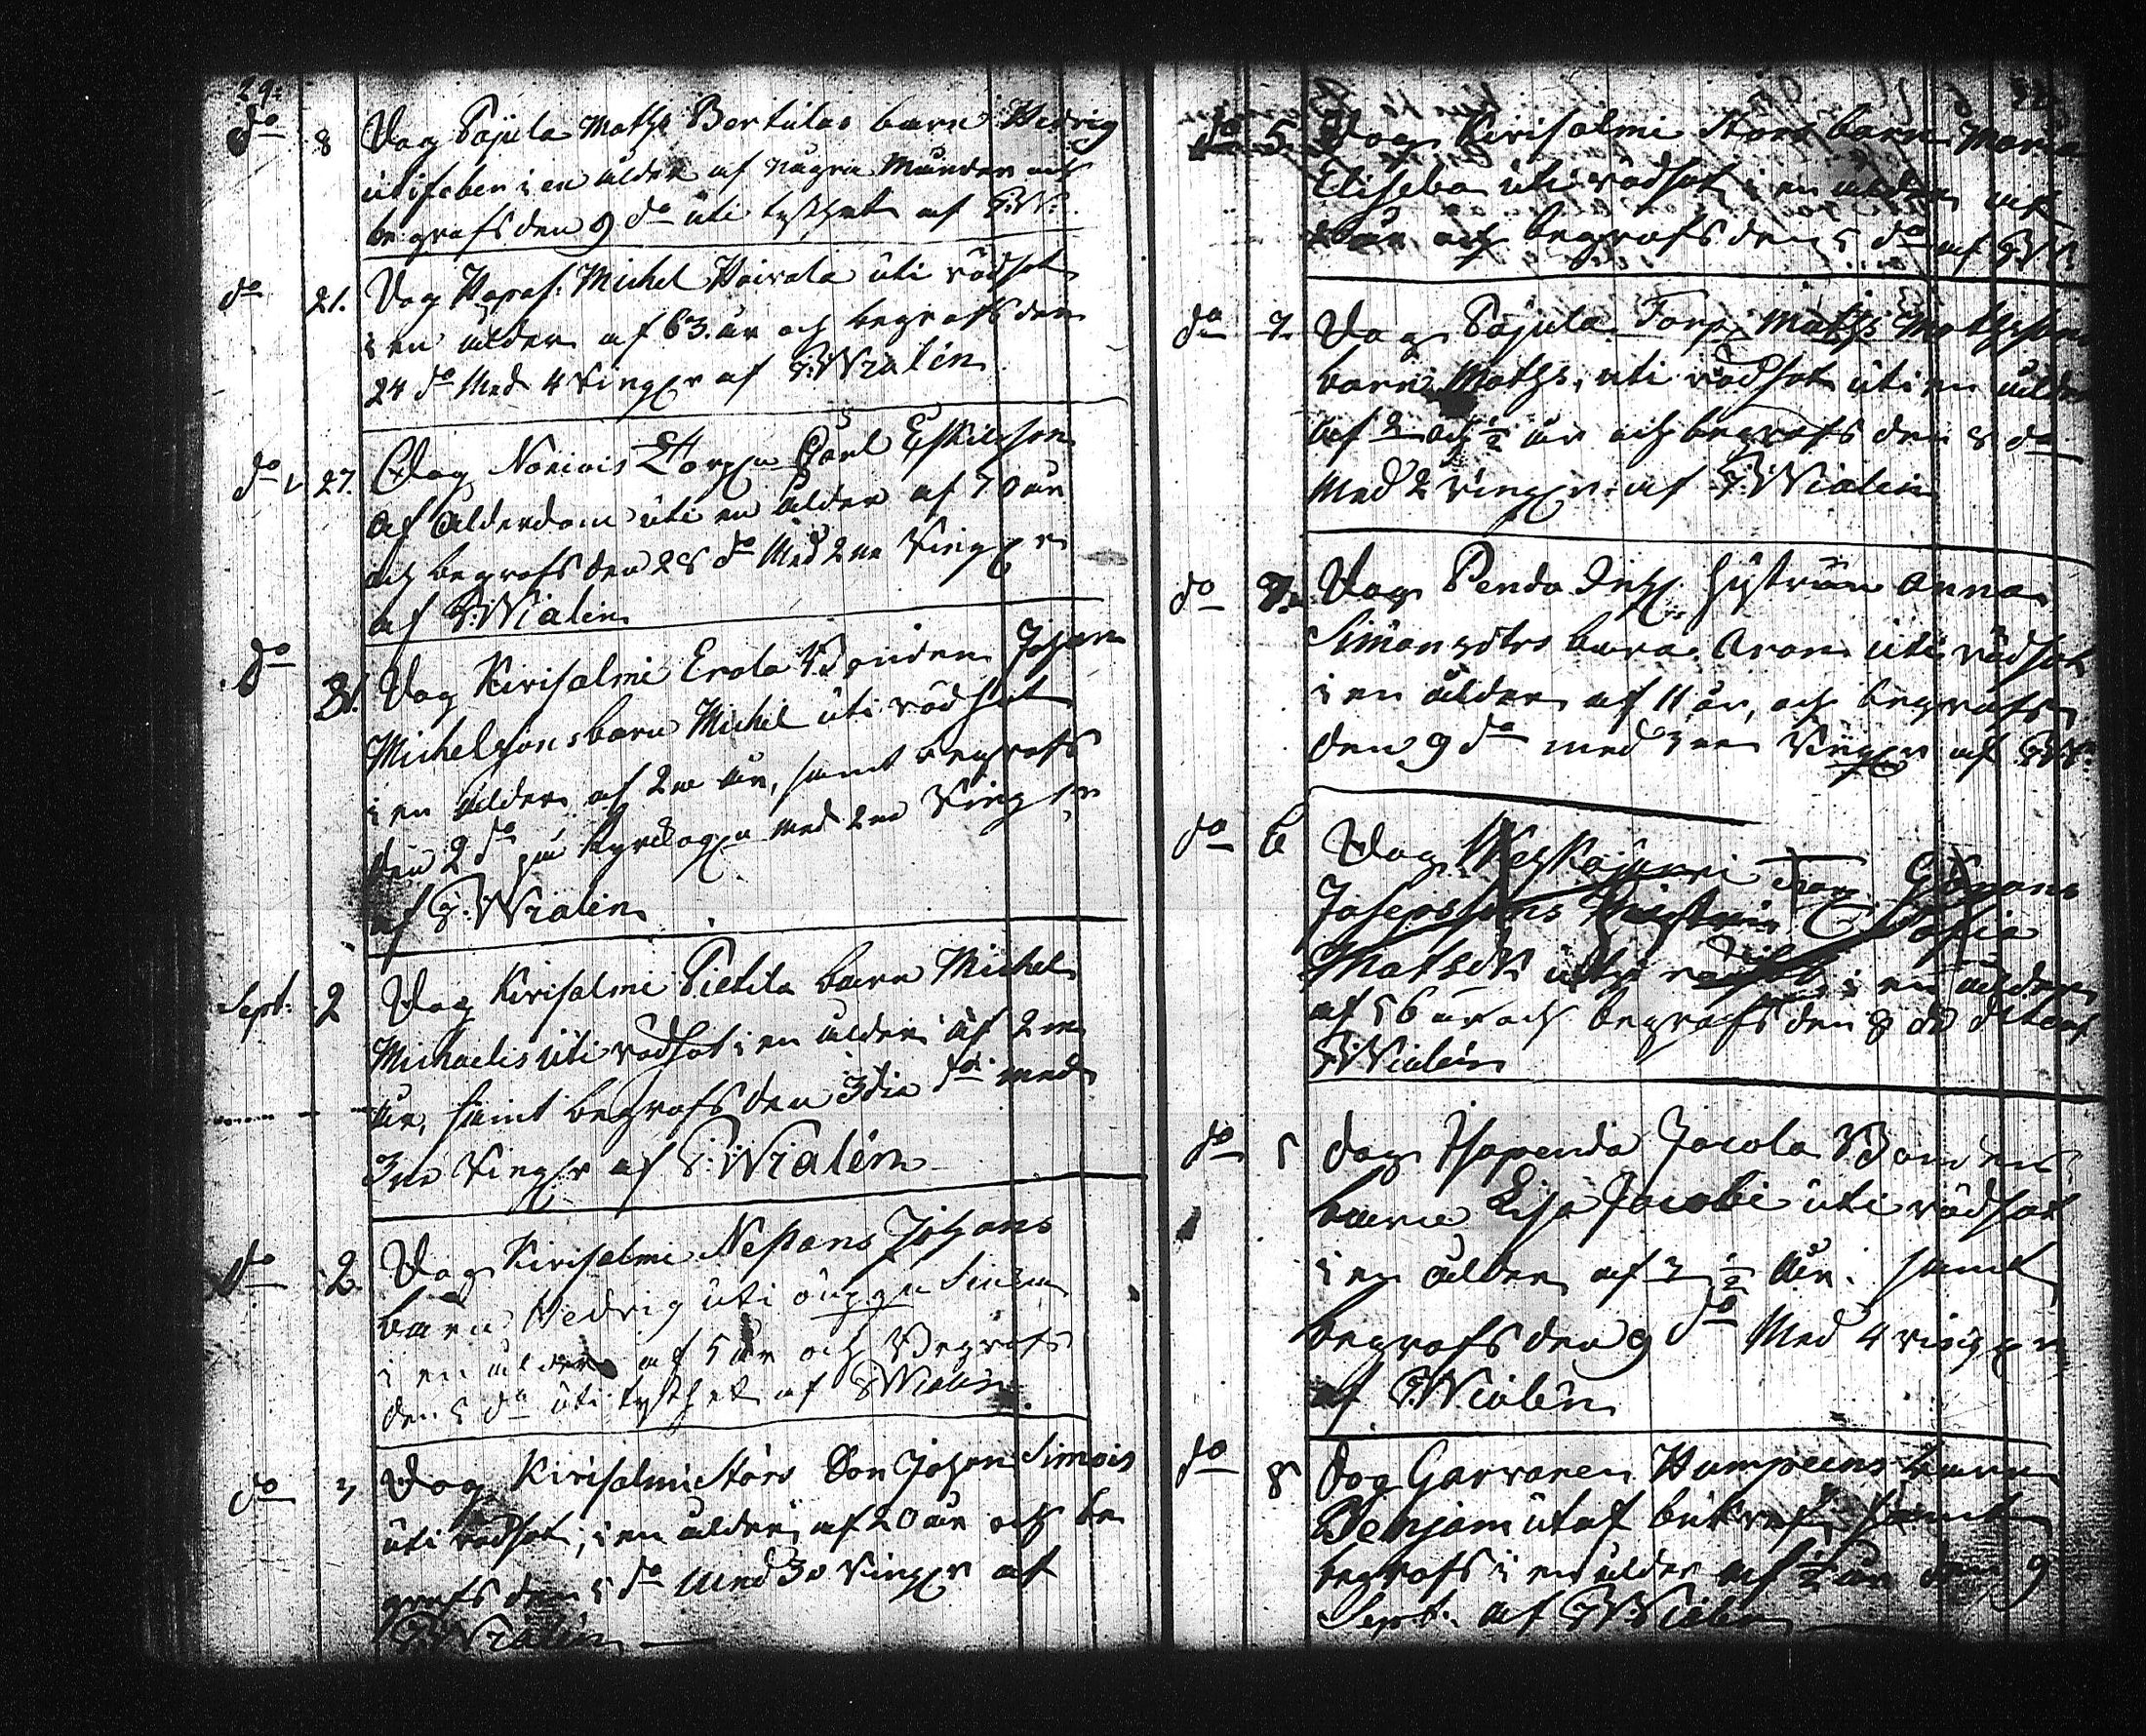 29.
do 8 Dog Pojula Maths Bertulas barn Hedrig
uti feber i en ålder af några Månder och
begrofs den 9 do uti tysthet af G:W:
do 21. Dog Michel Hoivala uti rödsot
i en ålder af 63. år och begrofs den
24 do Med 4 Ring:r af G:Wialén
do 27. Dog Noriois Torp: Carl Eskilsson
af ålderdom uti en ålder af 70 år
och begrofs den 28 do Med 2ne Ring:r
af G:Wialén
do 31. Dog Kirisalmi Erola Bonden Johan
Michelssons barn Michel uti rödsot
i en ålder af 2ne år, samt begrofs
den 2 do på med 2ne Ring:r
af G:Wialén
Sept: 2 Dog Kirisalmi Pietila barn Michel
Michaelis uti rödsot i en ålder af 2ne
år, samt begrofs den 3die do med
3ne Ring:r af G:Wialén
do 2. Dog Kirisalmi Johans
barn Hedrig uti
i en ålder af 5 år och Begrofs
den 5 do uti tysthet af G:Wialén
do 3 Dog Kirisalmi Stårs Son Johan Simois
uti rödsot, i en ålder af 20 år och be
grofs den 5 do Med 3e Ring:r af
G:Wialén
do 5. Dog Kirisalmi Stårs barn Maria
Eliseba uti rödsot i en ålder af
år och begrofs den 5 do af G:W:
do 7. Dog Pojula Torp: Maths Mathssons
barn Maths, uti rödsot uti en ålder
af 2 och 1/2 år och begrofs den 8 do
Med 2 ring:r af G:Wialén
do 7. Dog Penda Inh: hustrun Anna
Simonsdtrs barn Aron uti rödsot
i en ålder af 11 år, och begrofs
den 9 do med 3ne Ring:r af G:W:
do 6 Dog Torp: Görans
Josepssons Hustru Sofia
Matsdtr uti i en ålder
af 56 år och begrofs den 8 do
G:Wialén
do 5 Dog Hapenda Jacola Bondens
barn Lisa Jacobi uti rödsot
i en ålder af 3 1/2 år. samt
begrofs den 9 do Med 4 ring:r
af G:Wialén
do 8 Dog Garvaren Humpeens barn
Benjam utaf samt
begrofs i en ålder af 1/2 år den 9
Sept: af G:Wialén